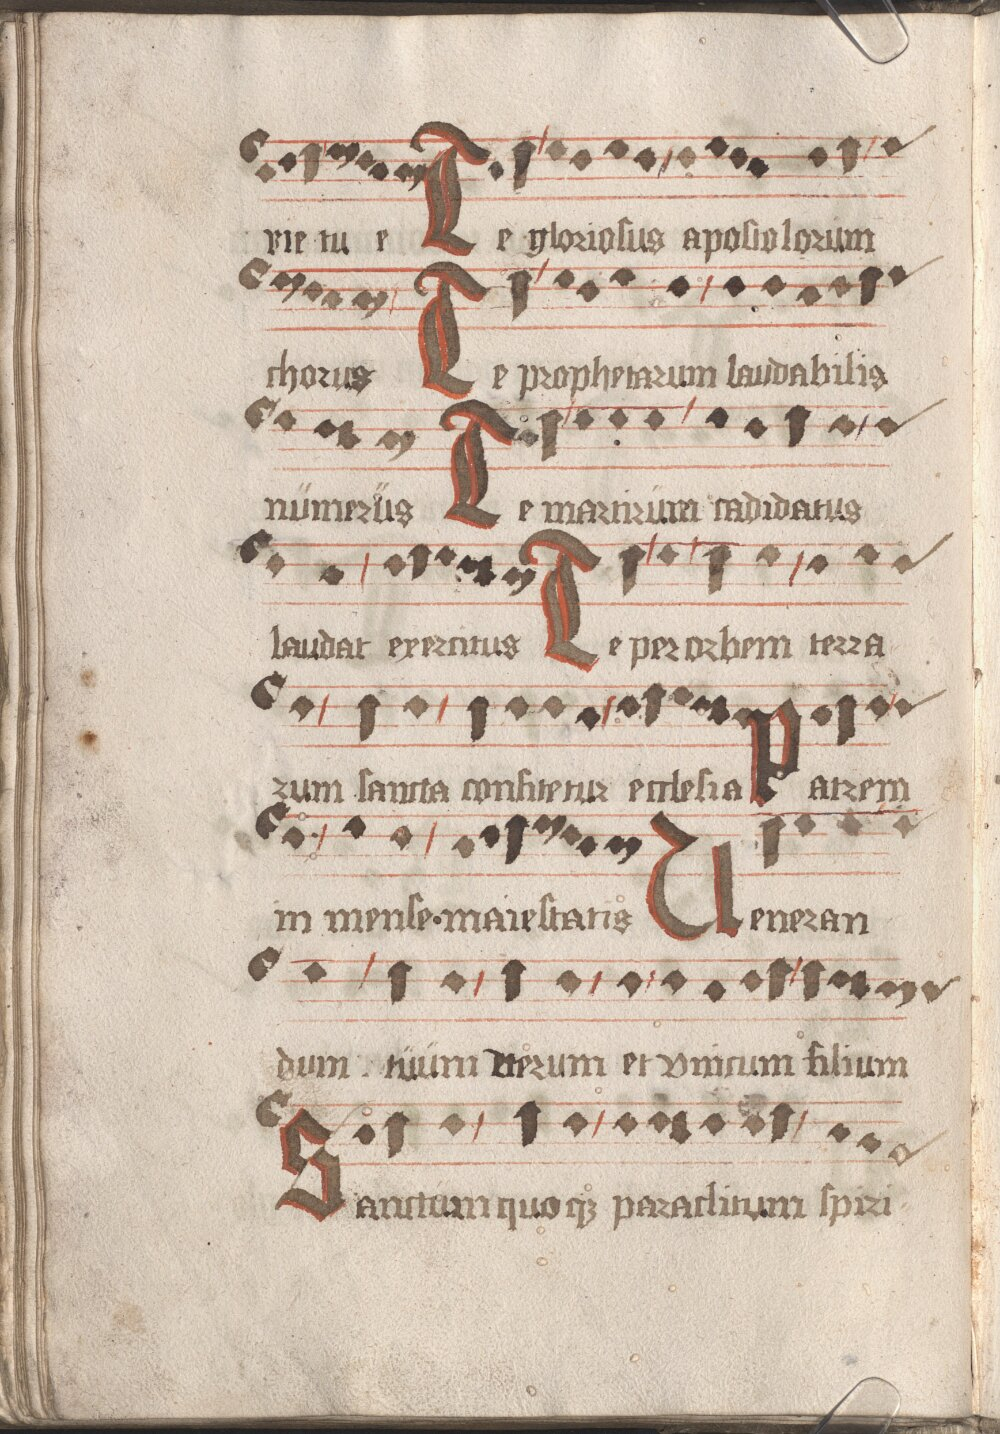 rie tu e Te gloriosus apostolorum
chorus Te prophetarum laudabilis
numerus Te martirum cadidatus
laudat exercitus Te per orbem terra
rum sancta confitetur ecclesia Patrem
in mense maiestatis Ueneran
dum tuum verum et vnicum filium
Sanctum quoqꝫ paraclitum spiri